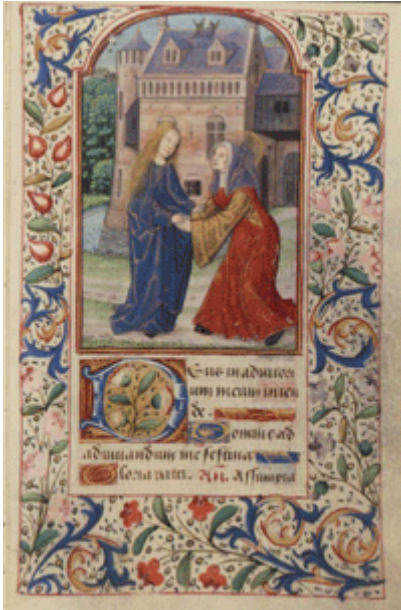 DEus in adiutori
um meum inten
de.
Domine ad
adiuuandum me festina
Gloria patri. An. Assumpta